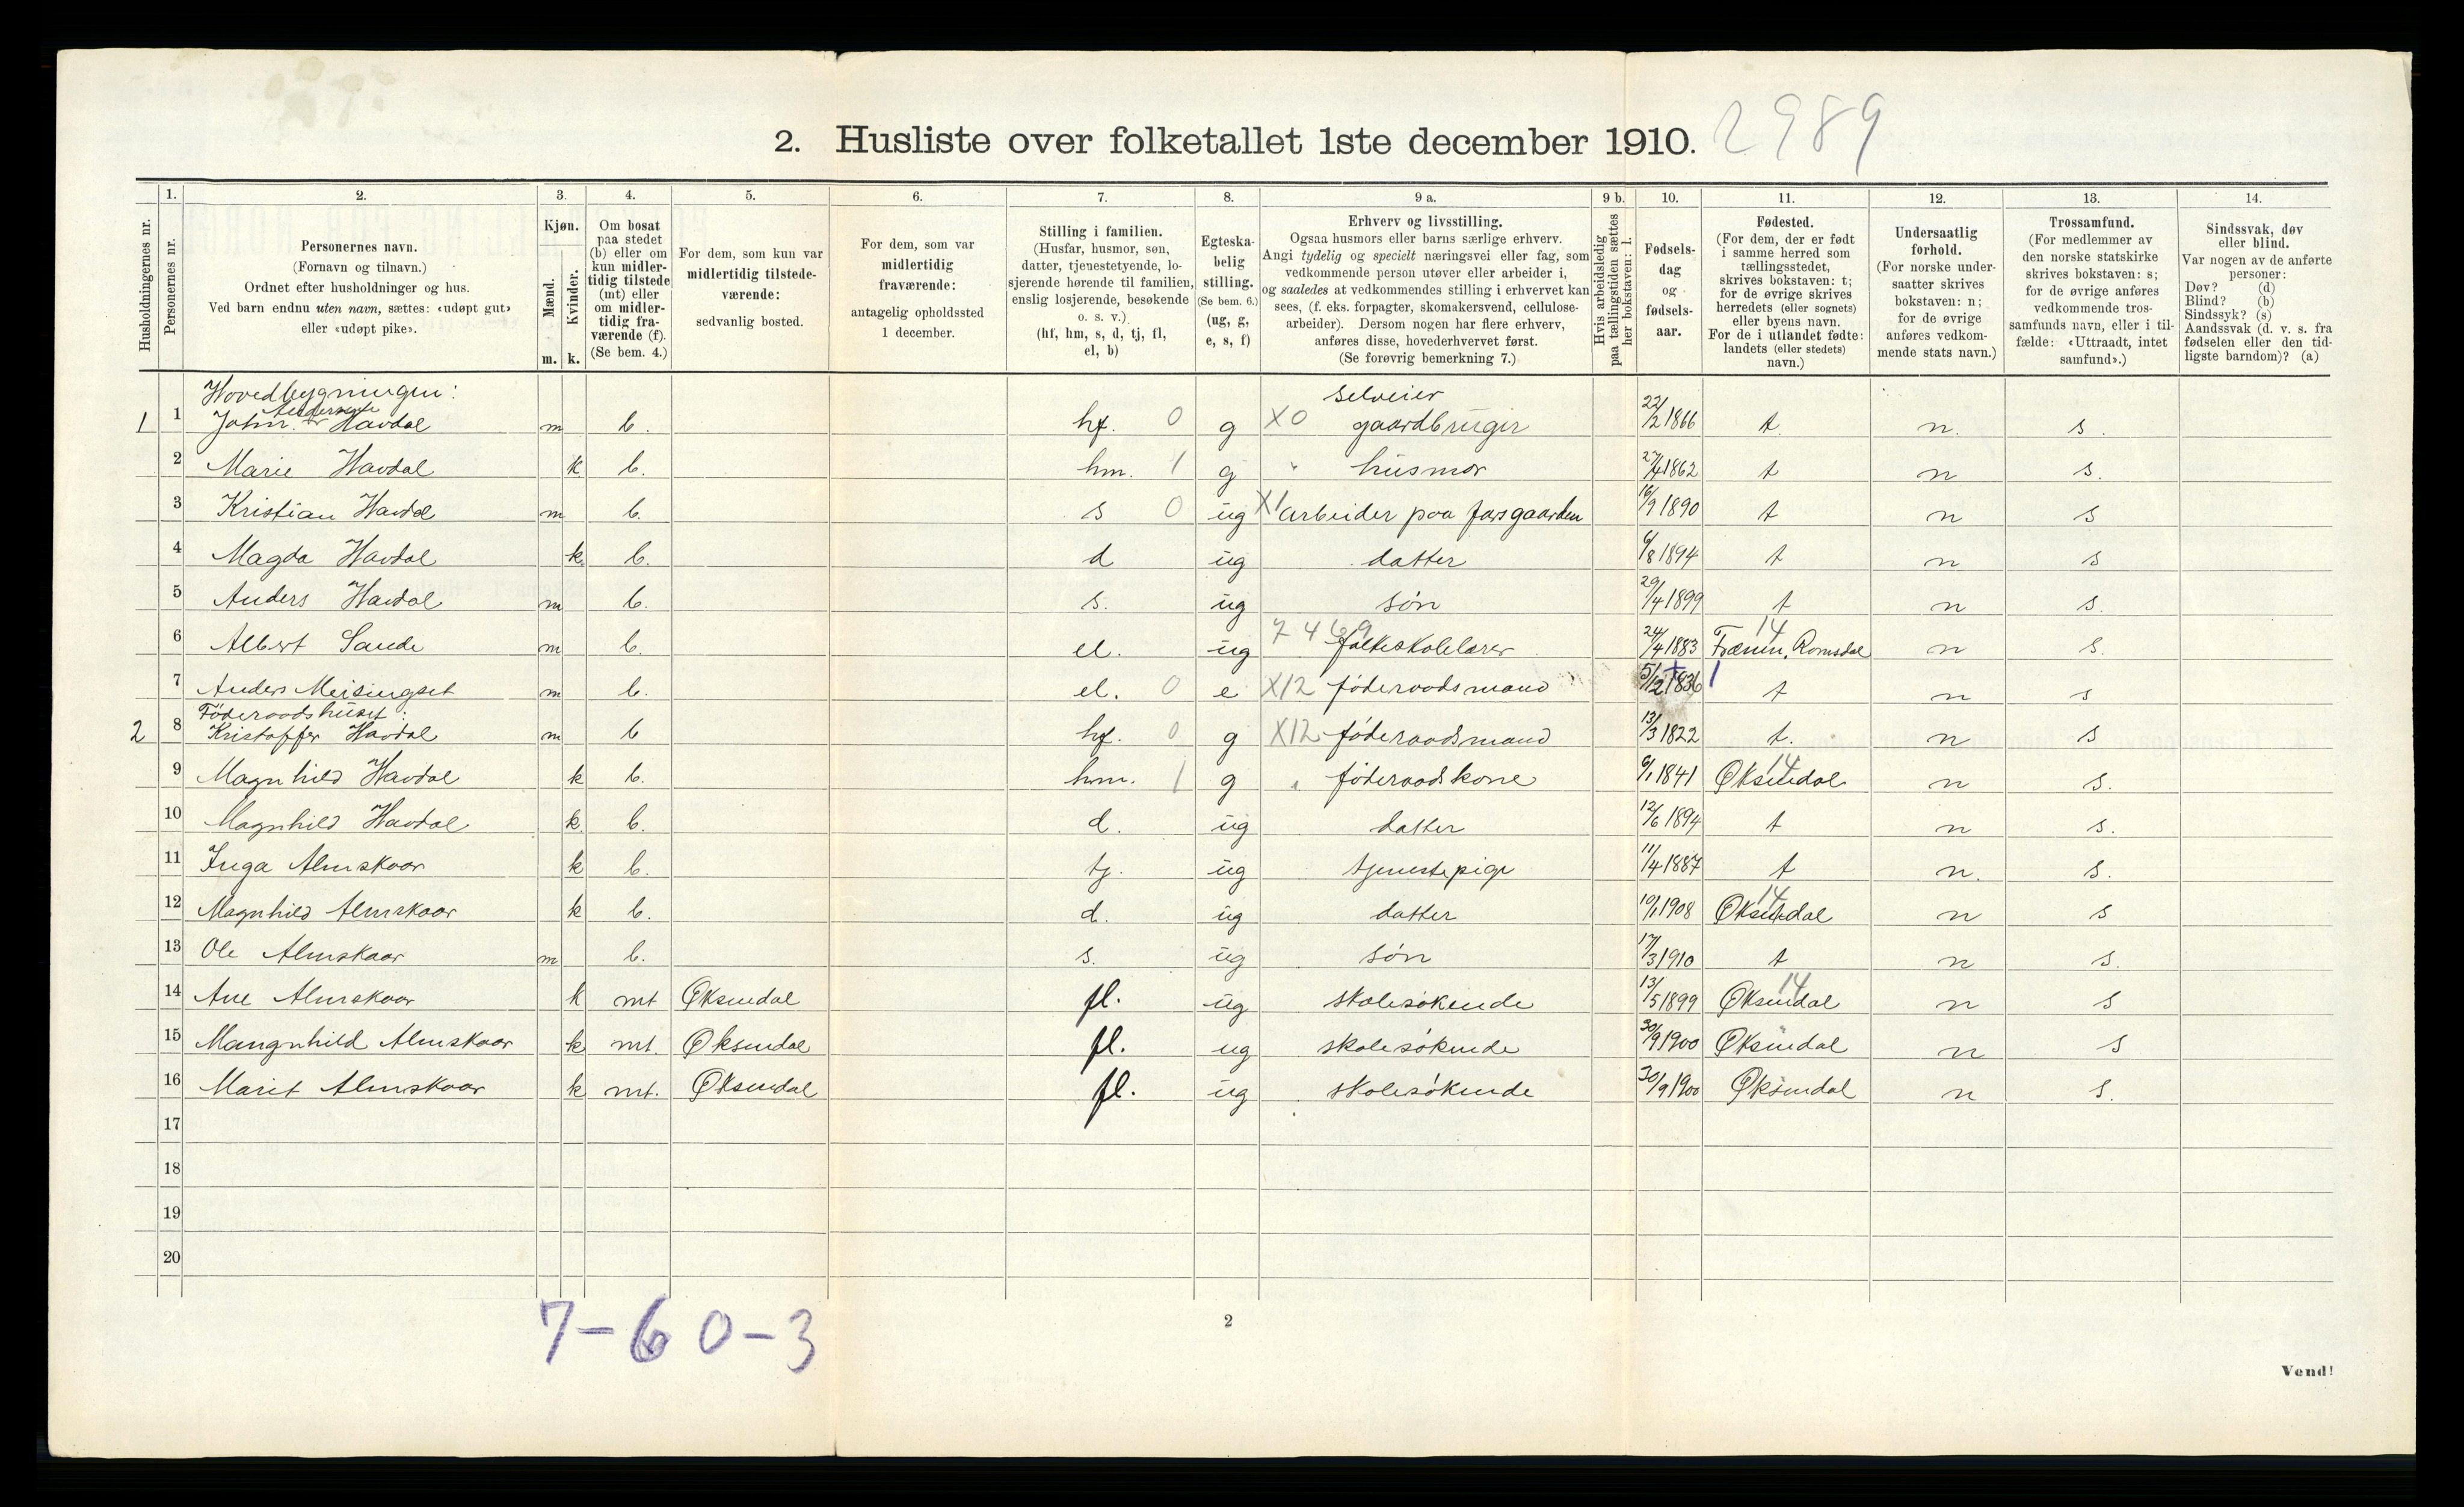 2. Husliste over folketallet 1ste december 1910. 2989
Husholdningernes nr.
1.
Personernes nr.
2.
Personernes navn.
(Fornavn og tilnavn.)
Ordnet efter husholdninger og hus.
Ved barn endnu uten navn, sættes: «udøpt gut»
eller «udøpt pike».
3.
Kjøn.
Mænd.
Kvinder.
m. k.
4.
Om bosat
paa stedet
(b) eller om
kun midler-
tidig tilstede
(mt) eller
om midler-
tidig fra-
værende (f).
(Se bem. 4.)
5.
For dem, som kun var
midlertidig tilstede-
værende:
sedvanlig bosted.
6.
For dem, som var
midlertidig
fraværende:
antagelig opholdssted
1 december.
7.
Stilling i familien.
(Husfar, husmor, søn,
datter, tjenestetyende, lo-
sjerende hørende til familien,
enslig losjerende, besøkende
o. s. v.)
(hf, hm, s, d, tj, fl,
el, b)
8.
Egteska-
belig
stilling.
(Se bem. 6.)
(ug, g,
e, s, f)
9 a.
Erhverv og livsstilling.
Ogsaa husmors eller barns særlige erhverv.
Angi tydelig og specielt næringsvei eller fag, som
vedkommende person utøver eller arbeider i,
og saaledes at vedkommendes stilling i erhvervet kan
sees, (f. eks. forpagter, skomakersvend, cellulose-
arbeider). Dersom nogen har flere erhverv,
anføres disse, hovederhvervet først.
(Se forøvrig bemerkning 7.)
9 b.
Hvis arbeidsledig
paa tællingstiden sættes
her bokstaven: l.
10.
Fødsels-
dag
og
fødsels-
aar.
11.
Fødested.
(For dem, der er født
i samme herred som
tællingsstedet,
skrives bokstaven: t;
for de øvrige skrives
herredets (eller sognets)
eller byens navn.
For de i utlandet fødte:
landets (eller stedets)
navn.)
12.
Undersaatlig
forhold.
(For norske under-
saatter skrives
bokstaven: n;
for de øvrige
anføres vedkom-
mende stats navn.)
13.
Trossamfund.
(For medlemmer av
den norske statskirke
skrives bokstaven: s;
for de øvrige anføres
vedkommende tros-
samfunds navn, eller i til-
fælde: «Uttraadt, intet
samfund».)
14.
Sindssvak, døv
eller blind.
Var nogen av de anførte
personer:
Døv? (d)
Blind? (b)
Sindssyk? (s)
Aandssvak (d. v. s. fra
fødselen eller den tid-
ligste barndom)? (a)
Hovedbygningen: selveier
1 1 John Havdal m b. hf. 0 g X0 gaardbruger 22/2 1866 t n. s.
2 Marie Havdal k b. hm. 1 g " husmor 27/4 1862 t n s.
3 Kristian Havdal m b. s 0 ug X1 arbeider paa farsgaarden 16/9 1890 t n s
4 Magda Havdal k. b. d ug datter 6/8 1894 t n s
5 Anders Havdal m b. s. ug søn 29/4 1899 t n s.
6 Albert Sande m b. el. ug 7469 folkeskolelærer 24/4 1883 Frænen, Romsdal 14 n s.
7 Anders Meisingset m b. el. 0 e X12 føderaadsmand 5/12 1836 + 1 t n s
Föderaadshuset:
2 8 Kristoffer Havdal m b hf. 0 g X12 føderaadsmand 13/3 1822 t. n s
9 Magnhild Havdal k b. hm. 1 g " føderaadskone 6/1 1841 Øksendal 14 n s.
10 Magnhild Havdal k b. d. ug datter 12/6 1894 t n s.
11 Inga Almskaar k b. tj. ug tjenestepige 11/4 1887 t n. s.
12 Magnhild Almskaar k b. d. ug datter 10/1 1908 Øksendal 14 n s
13 Ole Almskaar m b. s. ug søn 17/3 1910 t n s.
14 Ane Almskaar k mt Øksendal fl. ug skolesøkende 13/5 1899 Øksendal 14 n s
15 Mangnhild Almskaar k mt. Øksendal fl. ug skolesøkende 30/9 1900 Øksendal n s
16 Marit Almskaar k mt. Øksendal fl. ug skolesøkende 30/9 1900 Øksendal n s.
17
18
19
20
7-6 0-3
2
Vend!